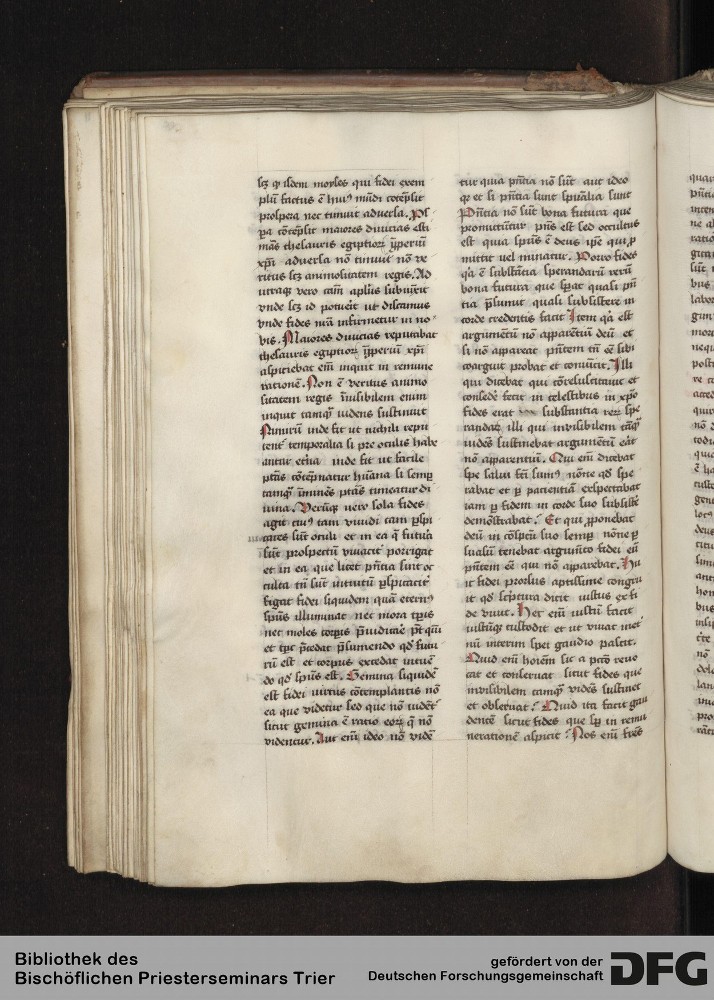 sꝫ ꝙ isdem moyses qui fidei exem
plū factus ē huiꝰ mūdi cōtēpsit
prospera nec timuit aduersa. Pſ
ꝑa cōtēpsit maiores diuicias esti
mās thesauris egiptioꝝ īpꝑeriū
xp̄i aduersa nō timuit nō ve
ritus sꝫ animositatem regis. Ad
utraqꝫ vero eam apl̄us subiūxit
vnde sꝫ id potuerit ut discamus
vnde fides nr̄a infirmetur in no
bis. Maiores diuicias reputabat
thesauris egiptioꝝ īpꝑeriū xp̄i
aspiciebat em̄ inquit in remune
rationē. Non ē veritus animo
sitatem regis īuisibilem enim
inquit tamqꝫ uidens sustinuit
Nimirū inde fit ut nichili repu
tent᷑ temporalia si pre oculis habe
antur et̄na inde fit ut facile
ptās cōtēpnatur hūana si semꝑ
tamqꝫ īminēs ptās timeatur di
uina. Verūqꝫ vero sola fides
agit cuiꝰ tam viuidi tam ꝑspi
caces sūt oculi et in ea q̄ futura
sūt prospectū viuacit᷑ porrigat
et in ea que licet pn̄tia sunt oc
culta tn̄ sunt intuitū ꝑspicacit᷑
figat fidei siquidem quā eternꝰ
sp̄us illuminat nec mora tp̄is
nec moles corpis p̄iudicat p̄t qn̄
et tp̄s p̄cedat p̄sumendo qd̄ futu
rū est et corpus excedat intuē
do qd̄ sp̄us est. Gemina siquidē
est fidei uirtus cōtemplantis nō
ea que videtur sed que nō uidēt᷑
sicut gemina ē ratio eoꝝ q̄ nō
videntur. Aut em̄ ideo nō vidē
tur quia pn̄tia nō sūt aut ideo
qꝛ et si pn̄tia sunt spūalia sunt
Pn̄tia nō sūt bona futura que
promittūtur pn̄s est sed occultus
est quia sp̄us ē deus ip̄e qui ꝓ
mittit uel minatur. Porro fides
q̄a ē substātia sperandarū rerū
bona futura que sꝑat quasi pn̄
tia p̄sumit quasi subsistere in
corde credentis facit Item q̄a est
argumētū nō apparētiū deū et
si nō appareat pn̄tem tn̄ eē sibi
coarguit probat et conuicit. Illi
qui dicebat qui cōresuscitauit et
consedē fecit in celestibus in xp̄o
fides erat substantia reꝝ spe
randaꝝ illi qui inuisibilem tāqꝫ
uidēs sustinebat argumētū eāt
nō apparentiū. Qui em̄ dicebat
spe salui fc̄i sumꝰ nōne qd̄ spe
rabat et ꝑ pacientiā exspectabat
iam ꝑ fidem in corde suo subsiste
demōstrabat. Et qui ꝓponebat
deū in cōspcū suo semꝑ nōne ꝑ
sualiū tenebat argumēto fidei eū
pn̄tem eē qui nō apparebat. Hu
ic fidei prorsus aptissime congru
it qd̄ sc̄ptura dicit iustus ex fi
de viuit. Hec em̄ iustū facit
iustūqꝫ custodit et ut viuat inet᷑
nū interim spei gaudio pascit.
Quid em̄ hoiēm sic a pctō reuo
cat et conseruat sicut fides que
inuisibilem tamqꝫ vidēs sustinet
et obseruat Quid ita facit gau
dentē sicut fides que sꝑ in remu
nerationē aspicit Nos em̄ frēs
Bibliothek des
Bischöflichen Priesterseminars Trier
gefördert von der
Deutschen Forschungsgemeinschaft
DFG